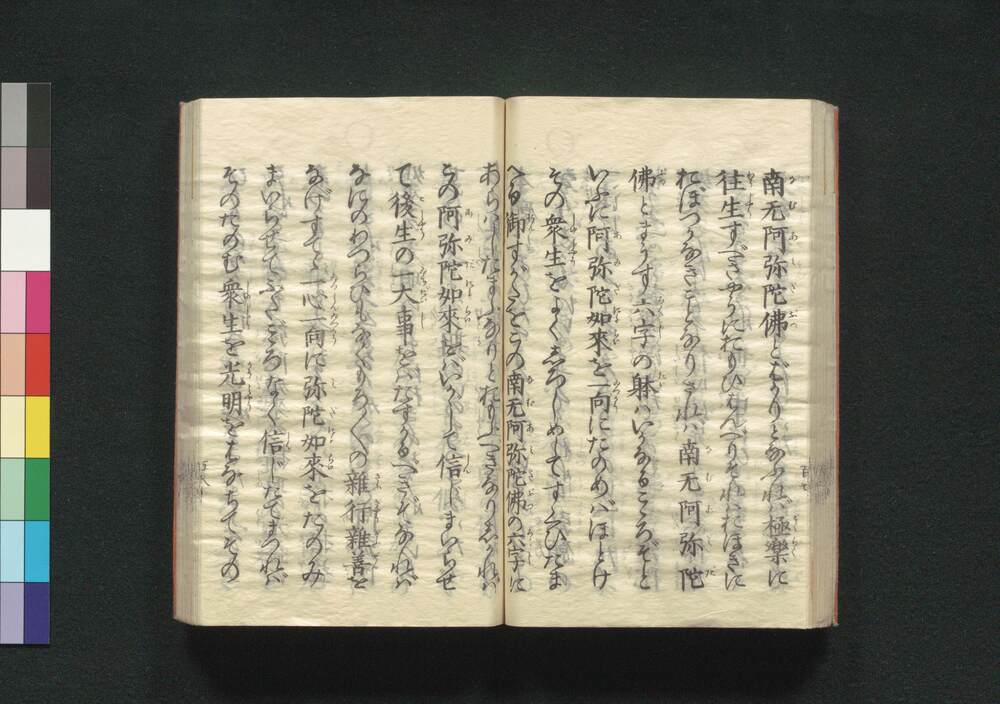 南无阿弥陀佛とばかりとなふれば極樂に
往生すべきやうにおもひはんべりそれはおほきに
おぼつかなきことなりされハ南无阿弥陀
佛とまうす六字の躰ハいかなるこころぞと
いふに阿弥陀如來を一向にたのめバほとけ
その衆生をよくしろしめしてすくひたま
へる御すがたをこの南无阿弥陀佛の六字に
あらハしたまふなりとおもふべきなりしかれバ
この阿弥陀如來をバいかがして信じまいらせ
て後生の一大事をバたすかるべきぞなれバ
なにのわづらひもなくもろもろの雜行雜善を
なげすてて一心一向に弥陀如來をたのみ
まいらせてふたごころなく信じたてまつれバ
そのたのむ衆生を光明をはなちてその